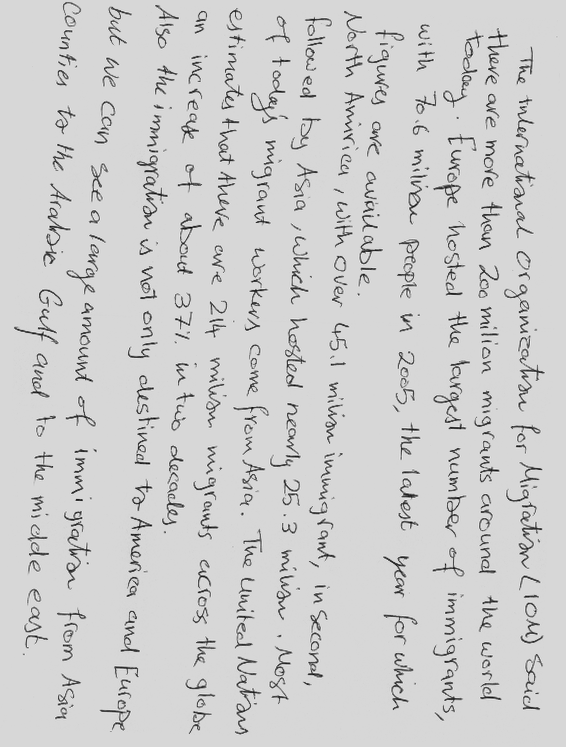 The International Organization for Migration (IOM) said
there are more than 200 milion migrants around the world
today. Europe hosted the largest number of immigrants,
with 70.6 milion people in 2005, the latest year for which
figures are available.
North Amirica, with over 45.1 milion immigrant, in second,
followed by Asia, which hosted nearly 25.3 milion. Most
of today's migrant workers come from Asia. The United Nations
estimates that there are 214 milion migrants across the globe
an increase of about 37% in two decades.
Also the immigration is not only destined to America and Europe
but we can see a large amount of immigration from Asia
Counties to the Arabic Gulf and to the middle east.